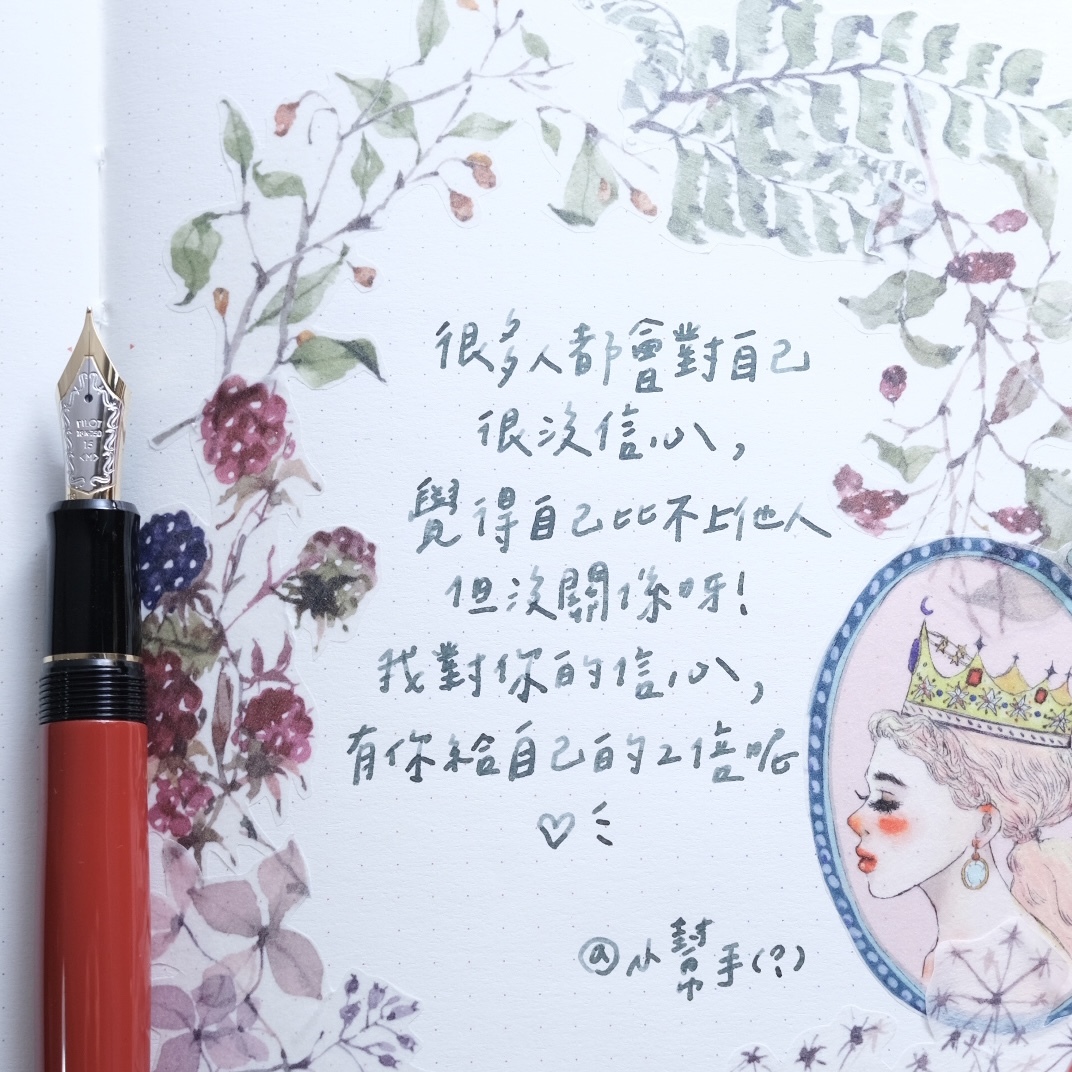 很多人都會對自己
很沒信心，
覺得自己比不上他人
但沒關係呀！
我對你的信心，
有你給自己的2倍呢
♡
@小幫手(?)
PILOT